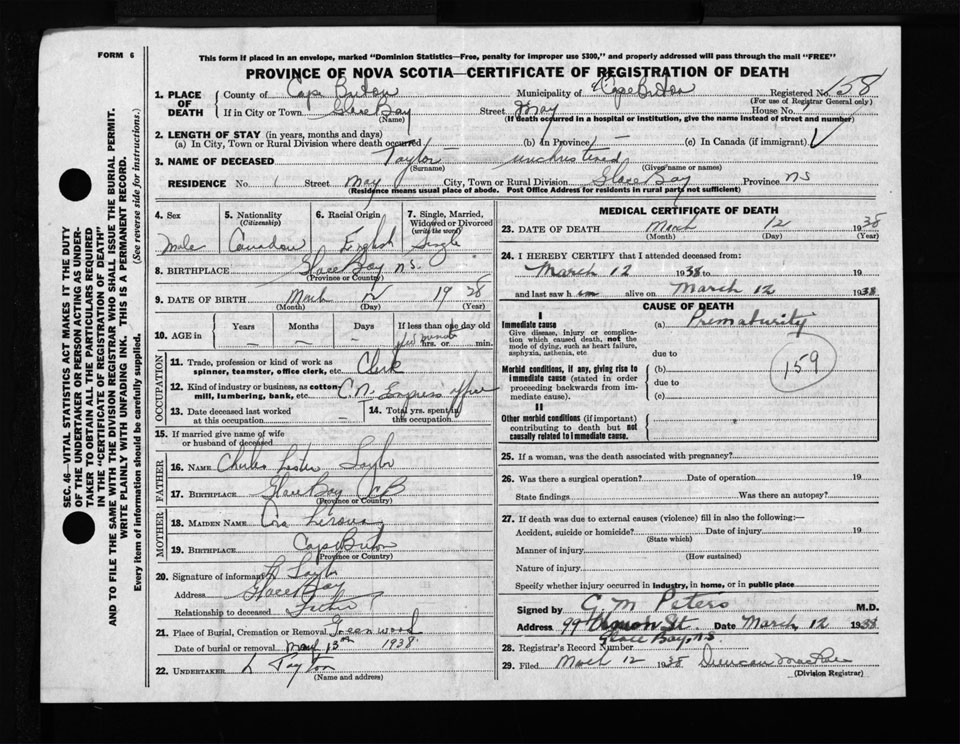 FORM 6
This form if placed in an envelope, marked "Dominion Statistics—Free, penalty for improper use $300," and properly addressed will pass through the mail "FREE"
PROVINCE OF NOVA SCOTIA—CERTIFICATE OF REGISTRATION OF DEATH
SEC. 46—VITAL STATISTICS ACT MAKES IT THE DUTY
OF THE UNDERTAKER OR PERSON ACTING AS UNDER-
TAKER TO OBTAIN ALL THE PARTICULARS REQUIRED
IN THE "CERTIFICATE OF REGISTRATION OF DEATH"
AND TO FILE THE SAME WITH THE DIVISION REGISTRAR WHO SHALL ISSUE THE BURIAL PERMIT.
WRITE PLAINLY WITH UNFADING INK. THIS IS A PERMANENT RECORD.
Every item of information should be carefully supplied. (See reverse side for instructions.)
1. PLACE OF DEATH County of Cape Breton Municipality of Cape Breton Registered No. 58
(For use of Registrar General only)
If in City or Town Glace Bay Street May House No. 1
(Name) (If death occurred in a hospital or institution, give the name instead of street and number)
2. LENGTH OF STAY (in years, months and days)
(a) In City, Town or Rural Division where death occurred (b) In Province — (c) In Canada (if immigrant)
3. NAME OF DECEASED Taylor — unchristened
(Surname) (Given name or names)
RESIDENCE No. 1 Street May City, Town or Rural Division Glace Bay Province NS
(Residence means usual place of abode. Post Office Address for residents in rural parts not sufficient)
4. Sex Male
5. Nationality (Citizenship) Canadian
6. Racial Origin English
7. Single, Married, Widowed or Divorced (write the word) Single
8. BIRTHPLACE Glace Bay N.S.
(Province or Country)
9. DATE OF BIRTH March 12 1938
(Month) (Day) (Year)
10. AGE in Years — Months — Days — If less than one day old few minutes hrs. or min.
OCCUPATION
11. Trade, profession or kind of work as spinner, teamster, office clerk, etc. Clerk
12. Kind of industry or business, as cotton mill, lumbering, bank, etc. C.N. Express office
13. Date deceased last worked at this occupation —
14. Total yrs. spent in this occupation —
15. If married give name of wife or husband of deceased
FATHER
16. NAME Charles Lester Taylor
17. BIRTHPLACE Glace Bay CB
(Province or Country)
MOTHER
18. MAIDEN NAME
19. BIRTHPLACE Cape Breton
(Province or Country)
20. Signature of informant Taylor
Address Glace Bay
Relationship to deceased Father
21. Place of Burial, Cremation or Removal Greenwood
Date of burial or removal March 13th 1938
22. UNDERTAKER
(Name and address)
MEDICAL CERTIFICATE OF DEATH
23. DATE OF DEATH March 12 1938
(Month) (Day) (Year)
24. I HEREBY CERTIFY that I attended deceased from:
March 12 1938 to 19
and last saw h im alive on March 12 1938
CAUSE OF DEATH
I
Immediate cause (a) Prematurity
Give disease, injury or complica-
tion which caused death, not the
mode of dying, such as heart failure,
asphyxia, asthenia, etc due to
159
Morbid conditions, if any, giving rise to (b)
immediate cause (stated in order due to
proceeding backwards from im-
mediate cause). (c)
II
Other morbid conditions (if important)
contributing to death but not
causally related to immediate cause.
25. If a woman, was the death associated with pregnancy?
26. Was there a surgical operation? Date of operation 19
State findings Was there an autopsy?
27. If death was due to external causes (violence) fill in also the following:—
Accident, suicide or homicide? Date of injury 19
(State which)
Manner of injury
(How sustained)
Nature of injury
Specify whether injury occurred in industry, in home, or in public place
Signed by G. M. Peters M.D.
Address 99 Union St. Date March 12 1938
Glace Bay, N.S.
28. Registrar's Record Number
29. Filed March 12 1938 Duncan
(Division Registrar)